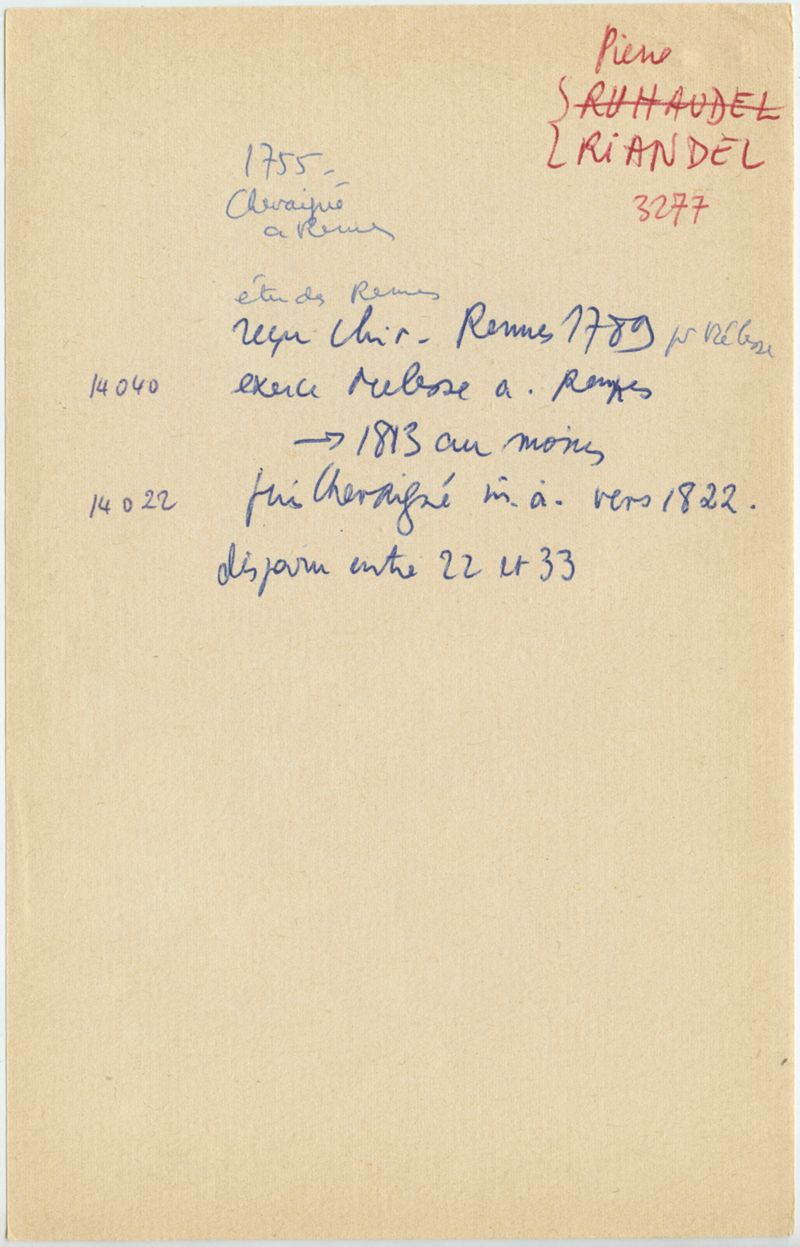 Pierre
RUHAUDEL
RiANDEL
3277
1755 -
Chevaigné
a Rennes
études Rennes
reçu Chir - Rennes 1789 pr Mélesse
14040 exerce Melesse a. Rennes
→ 1813 au moins
14022 puis Chevaigné m. a. vers 1822.
disparu entre 22 et 33